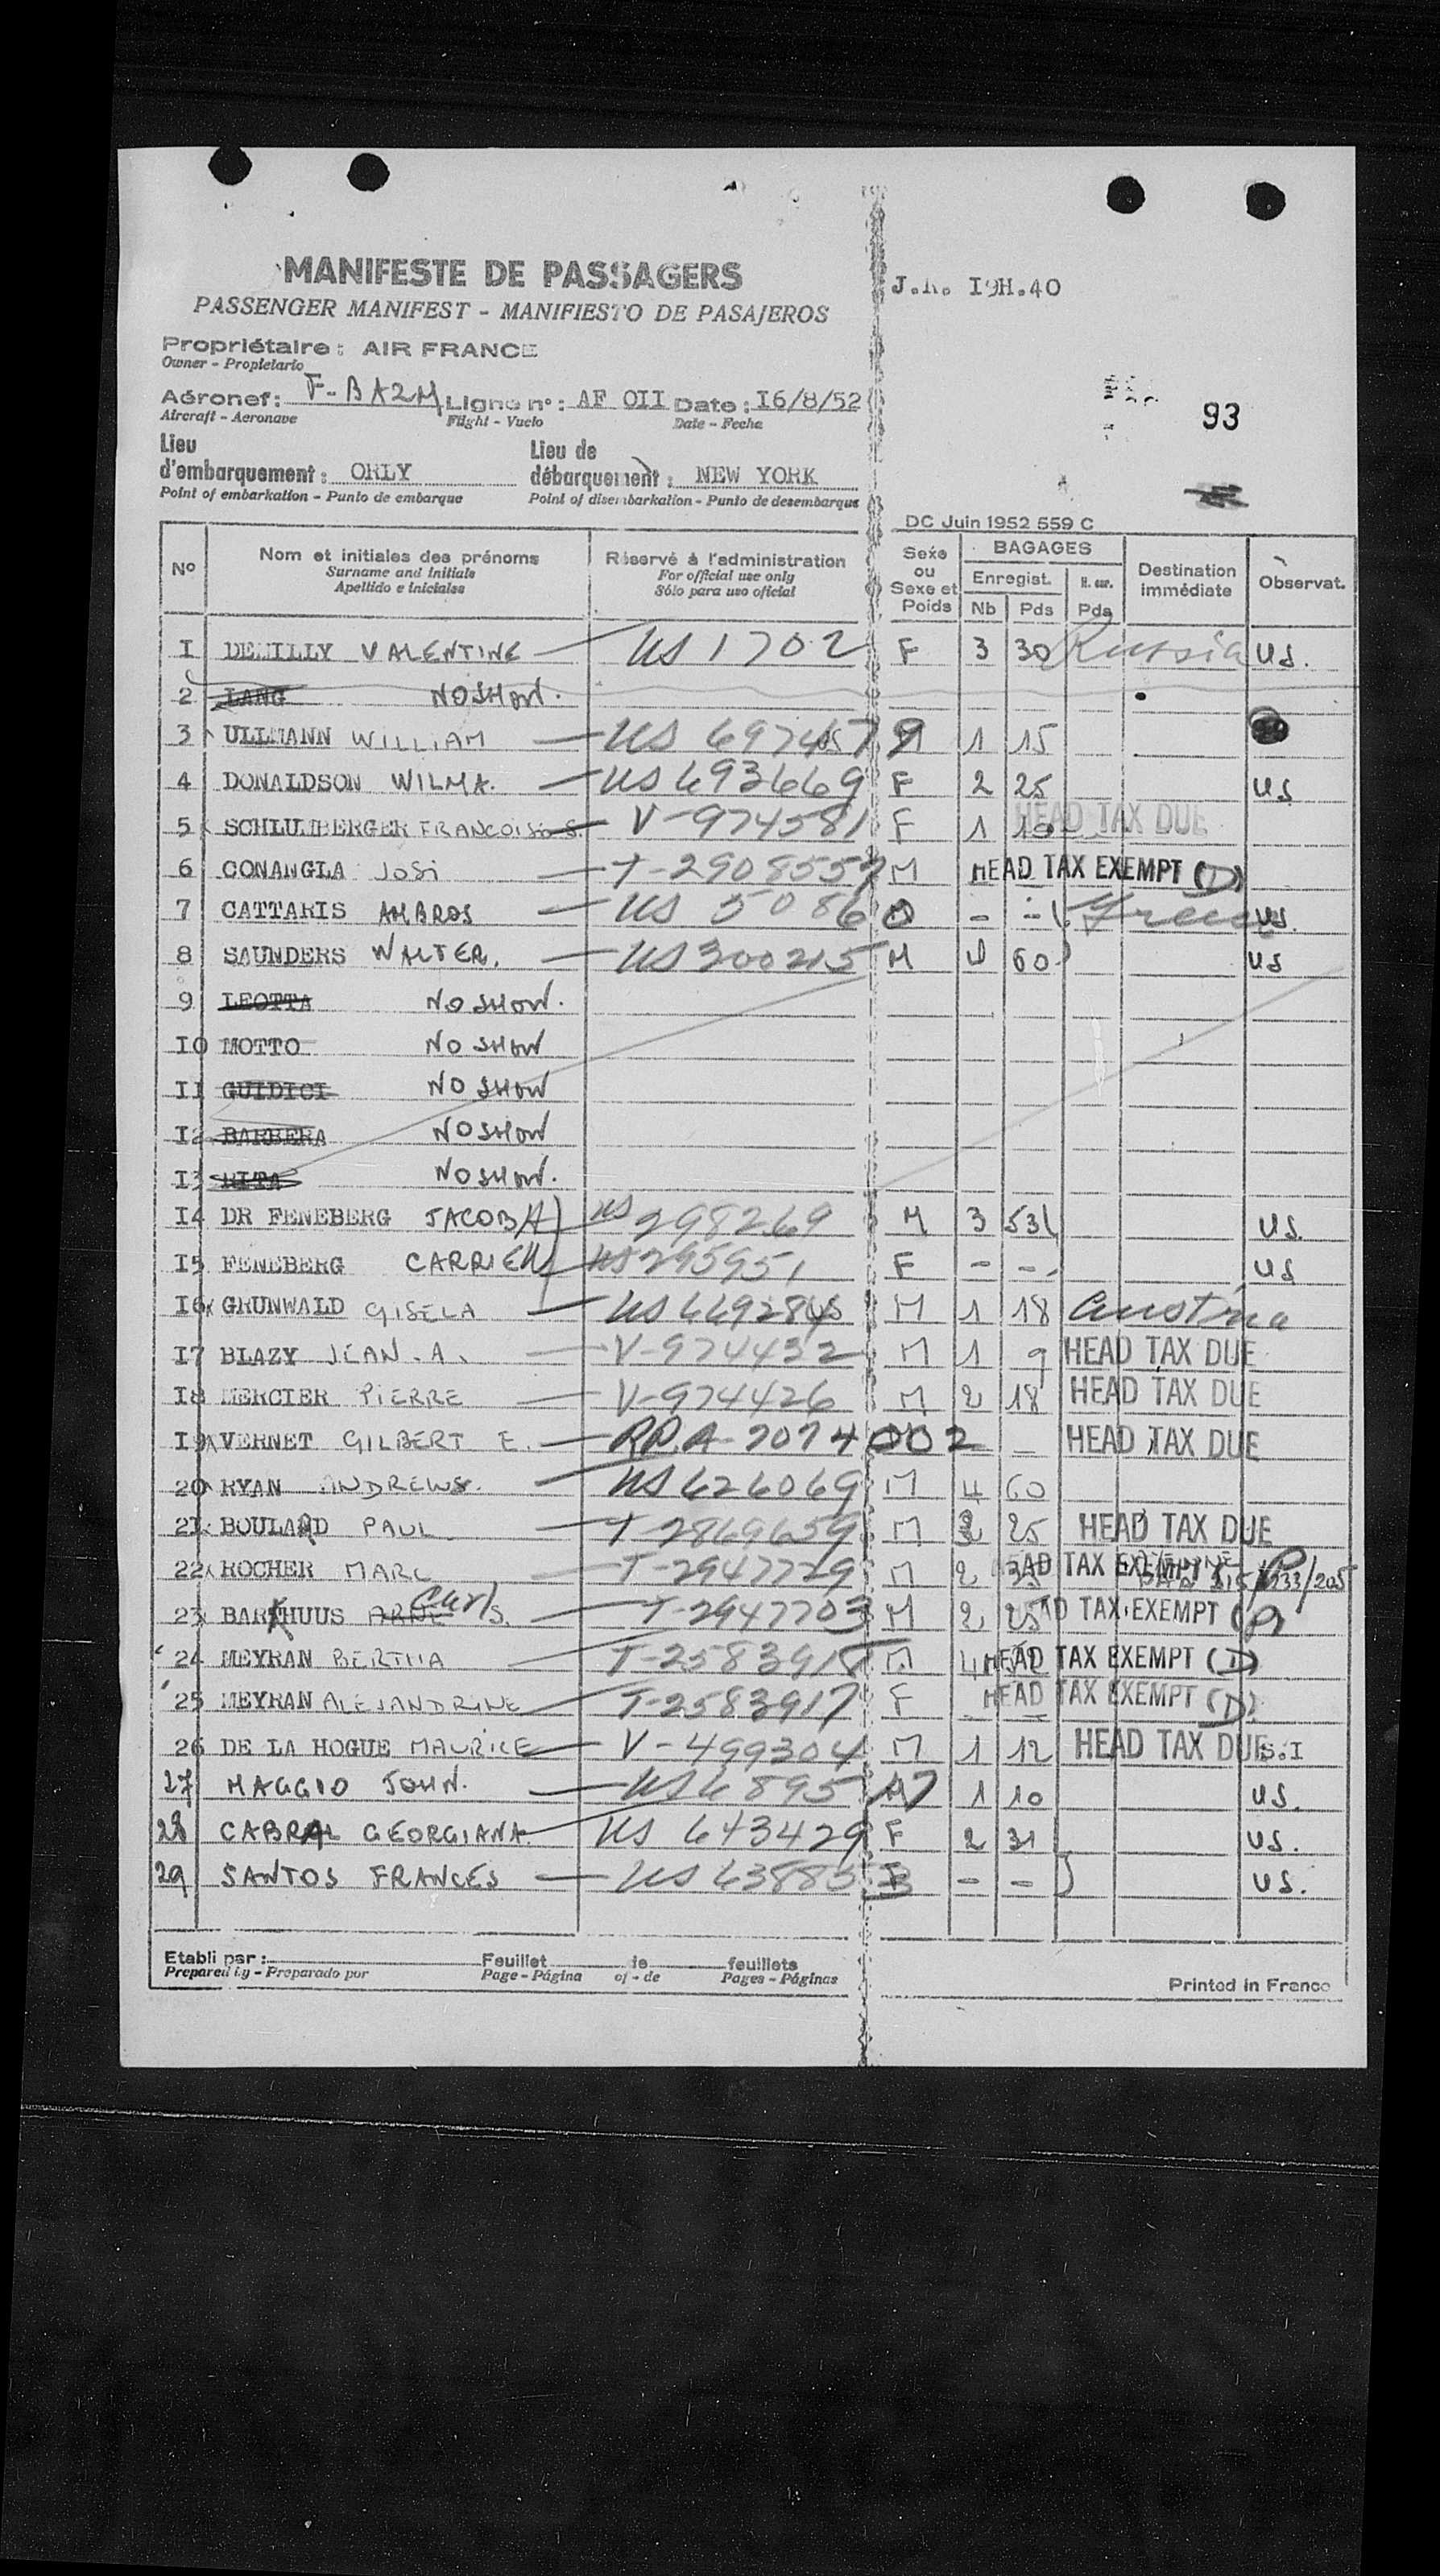 MANIFESTE DE PASSAGERS
PASSENGER MANIFEST - MANIFIESTO DE PASAJEROS
I9H.40
Propriétaire : AIR FRANCE
Owner - Propietario
Aéronef : F-BAZM Ligne n° : AF OII Date : I6/8/52
Aircraft - Aeronave Flight - Vuelo Date - Fecha
93
Lieu d'embarquement : ORLY Lieu de débarquement : NEW YORK
Point of embarkation - Punto de embarque Point of disembarkation - Punto de desembarque
DC Juin 1952 559 C
N° Nom et initiales des prénoms Réservé à l'administration Sexe ou Sexe et Poids BAGAGES Enregist. Nb Pds Pds Destination immédiate Observat.
Surname and initials For official use only
Apellido e iniciales Sólo para uso oficial
I DEMILLY VALENTINE US 1702 F 3 30 Russia US.
2 LANG NO SHOW.
3 ULLMANN WILLIAM US 1 15
4 DONALDSON WILMA. US 693669 F 2 25 US
5 SCHLUMBERGER FRANCOISE S. V-974581 F 1 HEAD TAX DUE
6 CONANGLA JOSI T-2908557 M HEAD TAX EXEMPT (D)
7 CATTARIS AMBROS US 50860 - - Greece US.
8 SAUNDERS WALTER. US 300215 M 60 US
9 LEOTTA NO SHOW.
I0 MOTTO NO SHOW
I1 GUIDICI NO SHOW
I2 BARBERA NO SHOW
I3 RITA NO SHOW.
I4 DR FENEBERG JACOB A US 298269 M 3 53 US.
I5 FENEBERG CARRIE US 295951 F - - US
I6 GRUNWALD GISELA US M 1 18 Austria
I7 BLAZY JEAN.A. V-974432 M 1 9 HEAD TAX DUE
I8 MERCIER PIERRE V-974426 M 2 18 HEAD TAX DUE
I9 VERNET GILBERT E. A-7074002 - HEAD TAX DUE
20 RYAN ANDREWS. US 626069 M 4 60
21 BOULARD PAUL T-2869659 M 2 25 HEAD TAX DUE
22 ROCHER MARC T-2947729 M 2 HEAD TAX EXEMPT
23 BARTHUUS ARNE Curt S. T-2947703 M 2 25 HEAD TAX EXEMPT
24 MEYRAN BERTHA T-2583918 M 4 HEAD TAX EXEMPT (D)
25 MEYRAN ALEJANDRINE T-2583917 F - - HEAD TAX EXEMPT (D)
26 DE LA HOGUE MAURICE V-499304 M 1 12 HEAD TAX DUE S.I
27 MAGGIO JOHN. US 68957 M 1 10 US.
28 CABRAL GEORGIANA. US 643429 F 2 31 US.
29 SANTOS FRANCES US 638833 F - - US.
Etabli par : Feuillet de feuillets
Prepared by - Preparado por Page - Página of - de Pages - Páginas
Printed in France